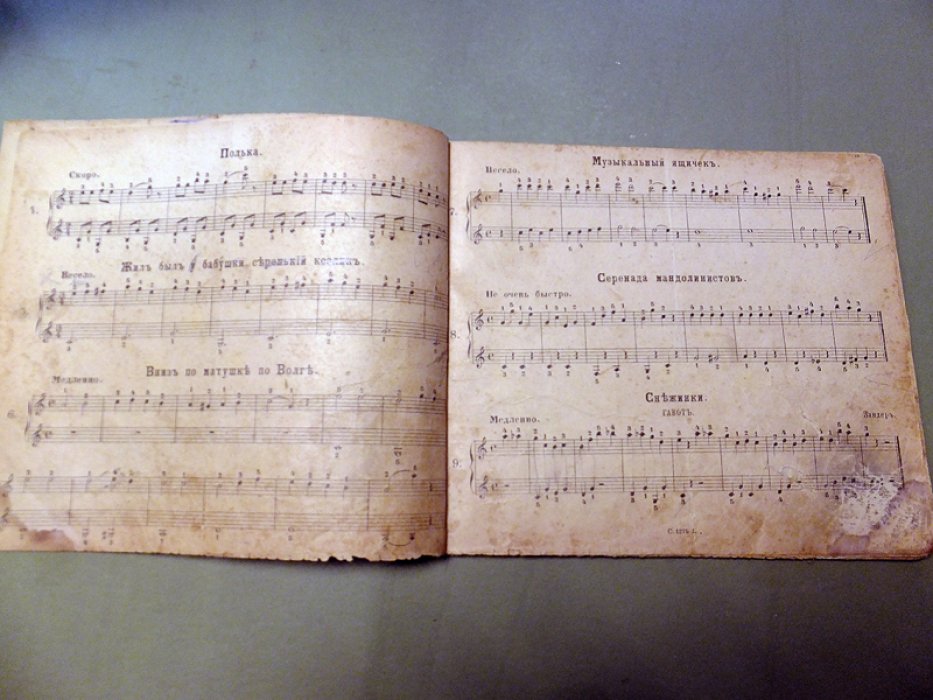 Полька.
Скоро.
4.
Жилъ былъ у бабушки сѣренькій козликъ.
Весело.
Внизъ по матушкѣ по Волгѣ.
Медленно.
6.
Музыкальный ящичекъ.
Весело.
7.
Серенада мандолинистовъ.
Не очень быстро.
8.
Снѣжинки.
ГАВОТЪ.
Медленно.
Зандеръ.
9.